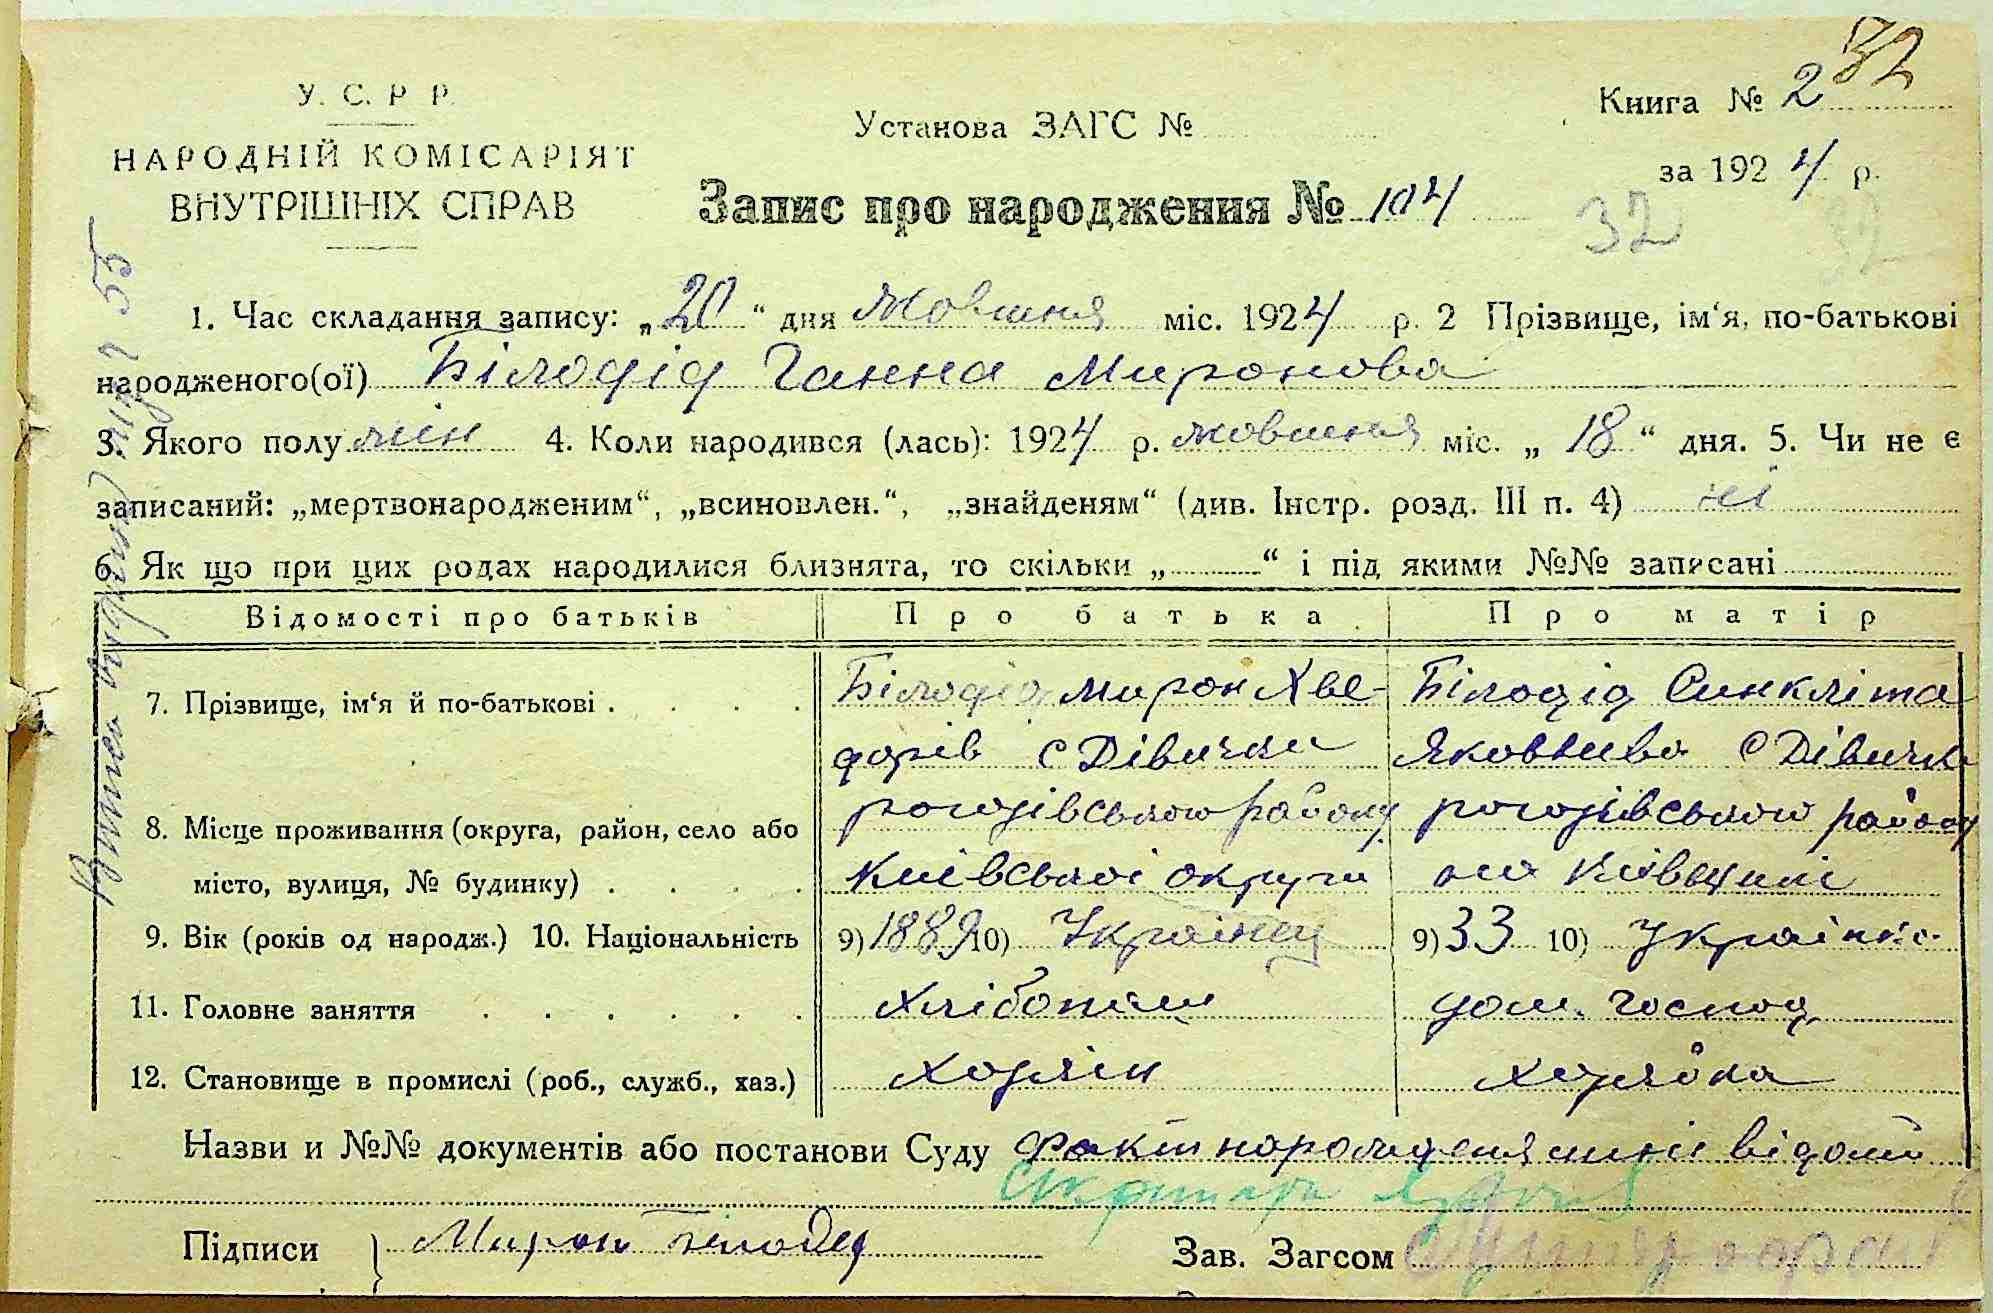 32
У. С. Р Р.
Книга № 2
Установа ЗАГС №
НАРОДНІЙ КОМІСАРІЯТ
за 1924 р.
ВНУТРІШНІХ СПРАВ
Запис про народження № 104
32
1. Час складання запису: „20“ дня Жовтня міс. 1924 р. 2 Прізвище, ім‘я, по-батькові
народженого(ої) Білодід Ганна Миронова
3. Якого полу жін 4. Коли народився (лась): 1924 р. жовтня міс. „18“ дня. 5. Чи не є
записаний: „мертвонародженим“, „всиновлен.“, „знайденям“ (див. Інстр. розд. III п. 4) ні
6. Як що при цих родах народилися близнята, то скільки „ “ і під якими №№ записані
Відомості про батьків Про батька Про матір
7. Прізвище, ім‘я й по-батькові Білодід Мирон Хве- Білодід Синкліта
дорів с Дівички Яковлива с Дівички
8. Місце проживання (округа, район, село або рогозівського району рогозівського району
місто, вулиця, № будинку) Київської округи на Київщині
9. Вік (років од народж.) 10. Національність 9) 1889 10) Українец 9) 33 10) Українка
11. Головне заняття хлібопаш дом. господ
12. Становище в промислі (роб., служб., хаз.) хозяїн хозяйка
Назви и №№ документів або постанови Суду Факт народженя мині відоми
Підписи Мирон Білодід
Зав. Загсом